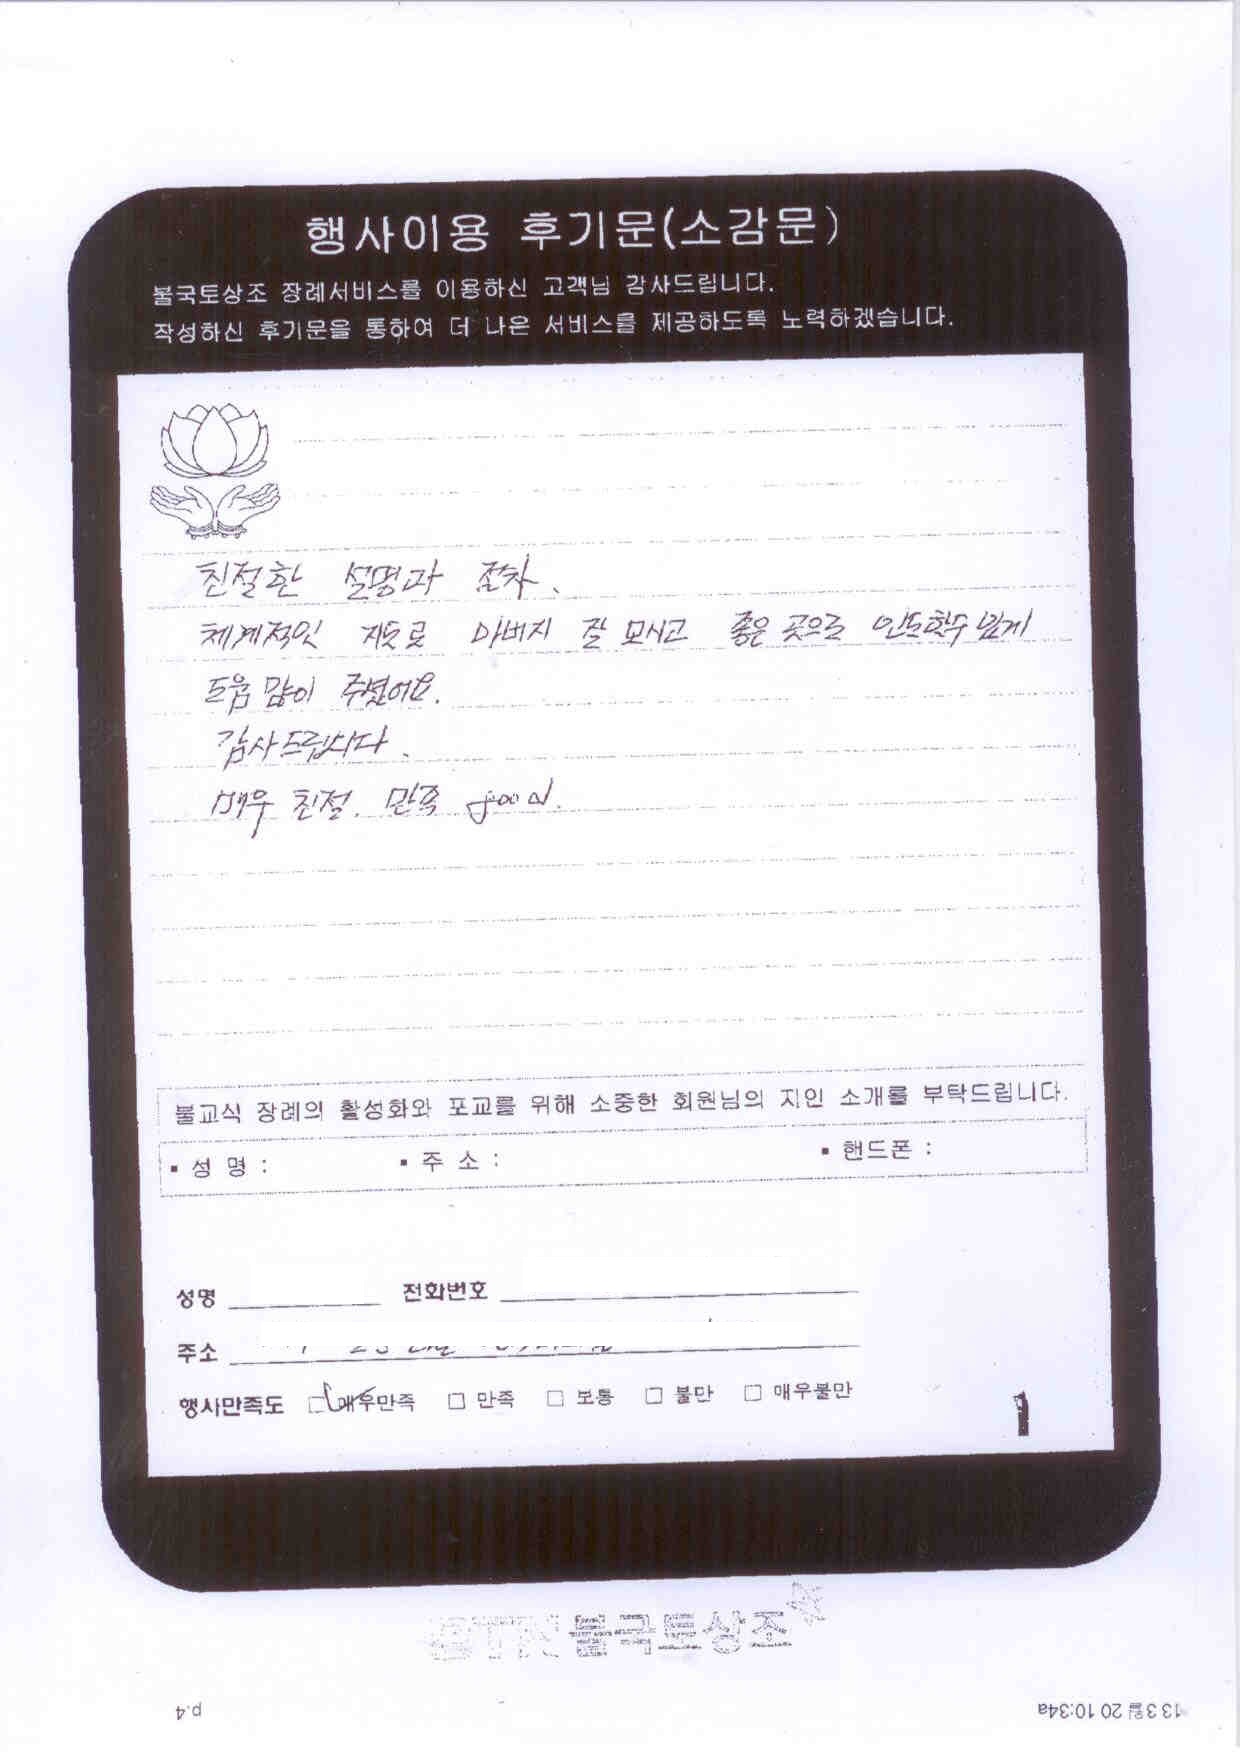 행사이용 후기문(소감문)
불국토상조 장례서비스를 이용하신 고객님 감사드립니다.
작성하신 후기문을 통하여 더 나은 서비스를 제공하도록 노력하겠습니다.
친절한 설명과 절차.
체계적인 지도로 아버지 잘 모시고 좋은 곳으로 인도할수 있게
도움 많이 주셨어요.
감사드립니다.
매우 친절. 만족 good.
불교식 장례의 활성화와 포교를 위해 소중한 회원님의 지인 소개를 부탁드립니다.
▪ 성 명 : ▪ 주 소 : ▪ 핸드폰 :
성명 전화번호
주소
행사만족도 □ 매우만족 □ 만족 □ 보통 □ 불만 □ 매우불만
1
불국토상조
p.4 13 3월 20 10:34a